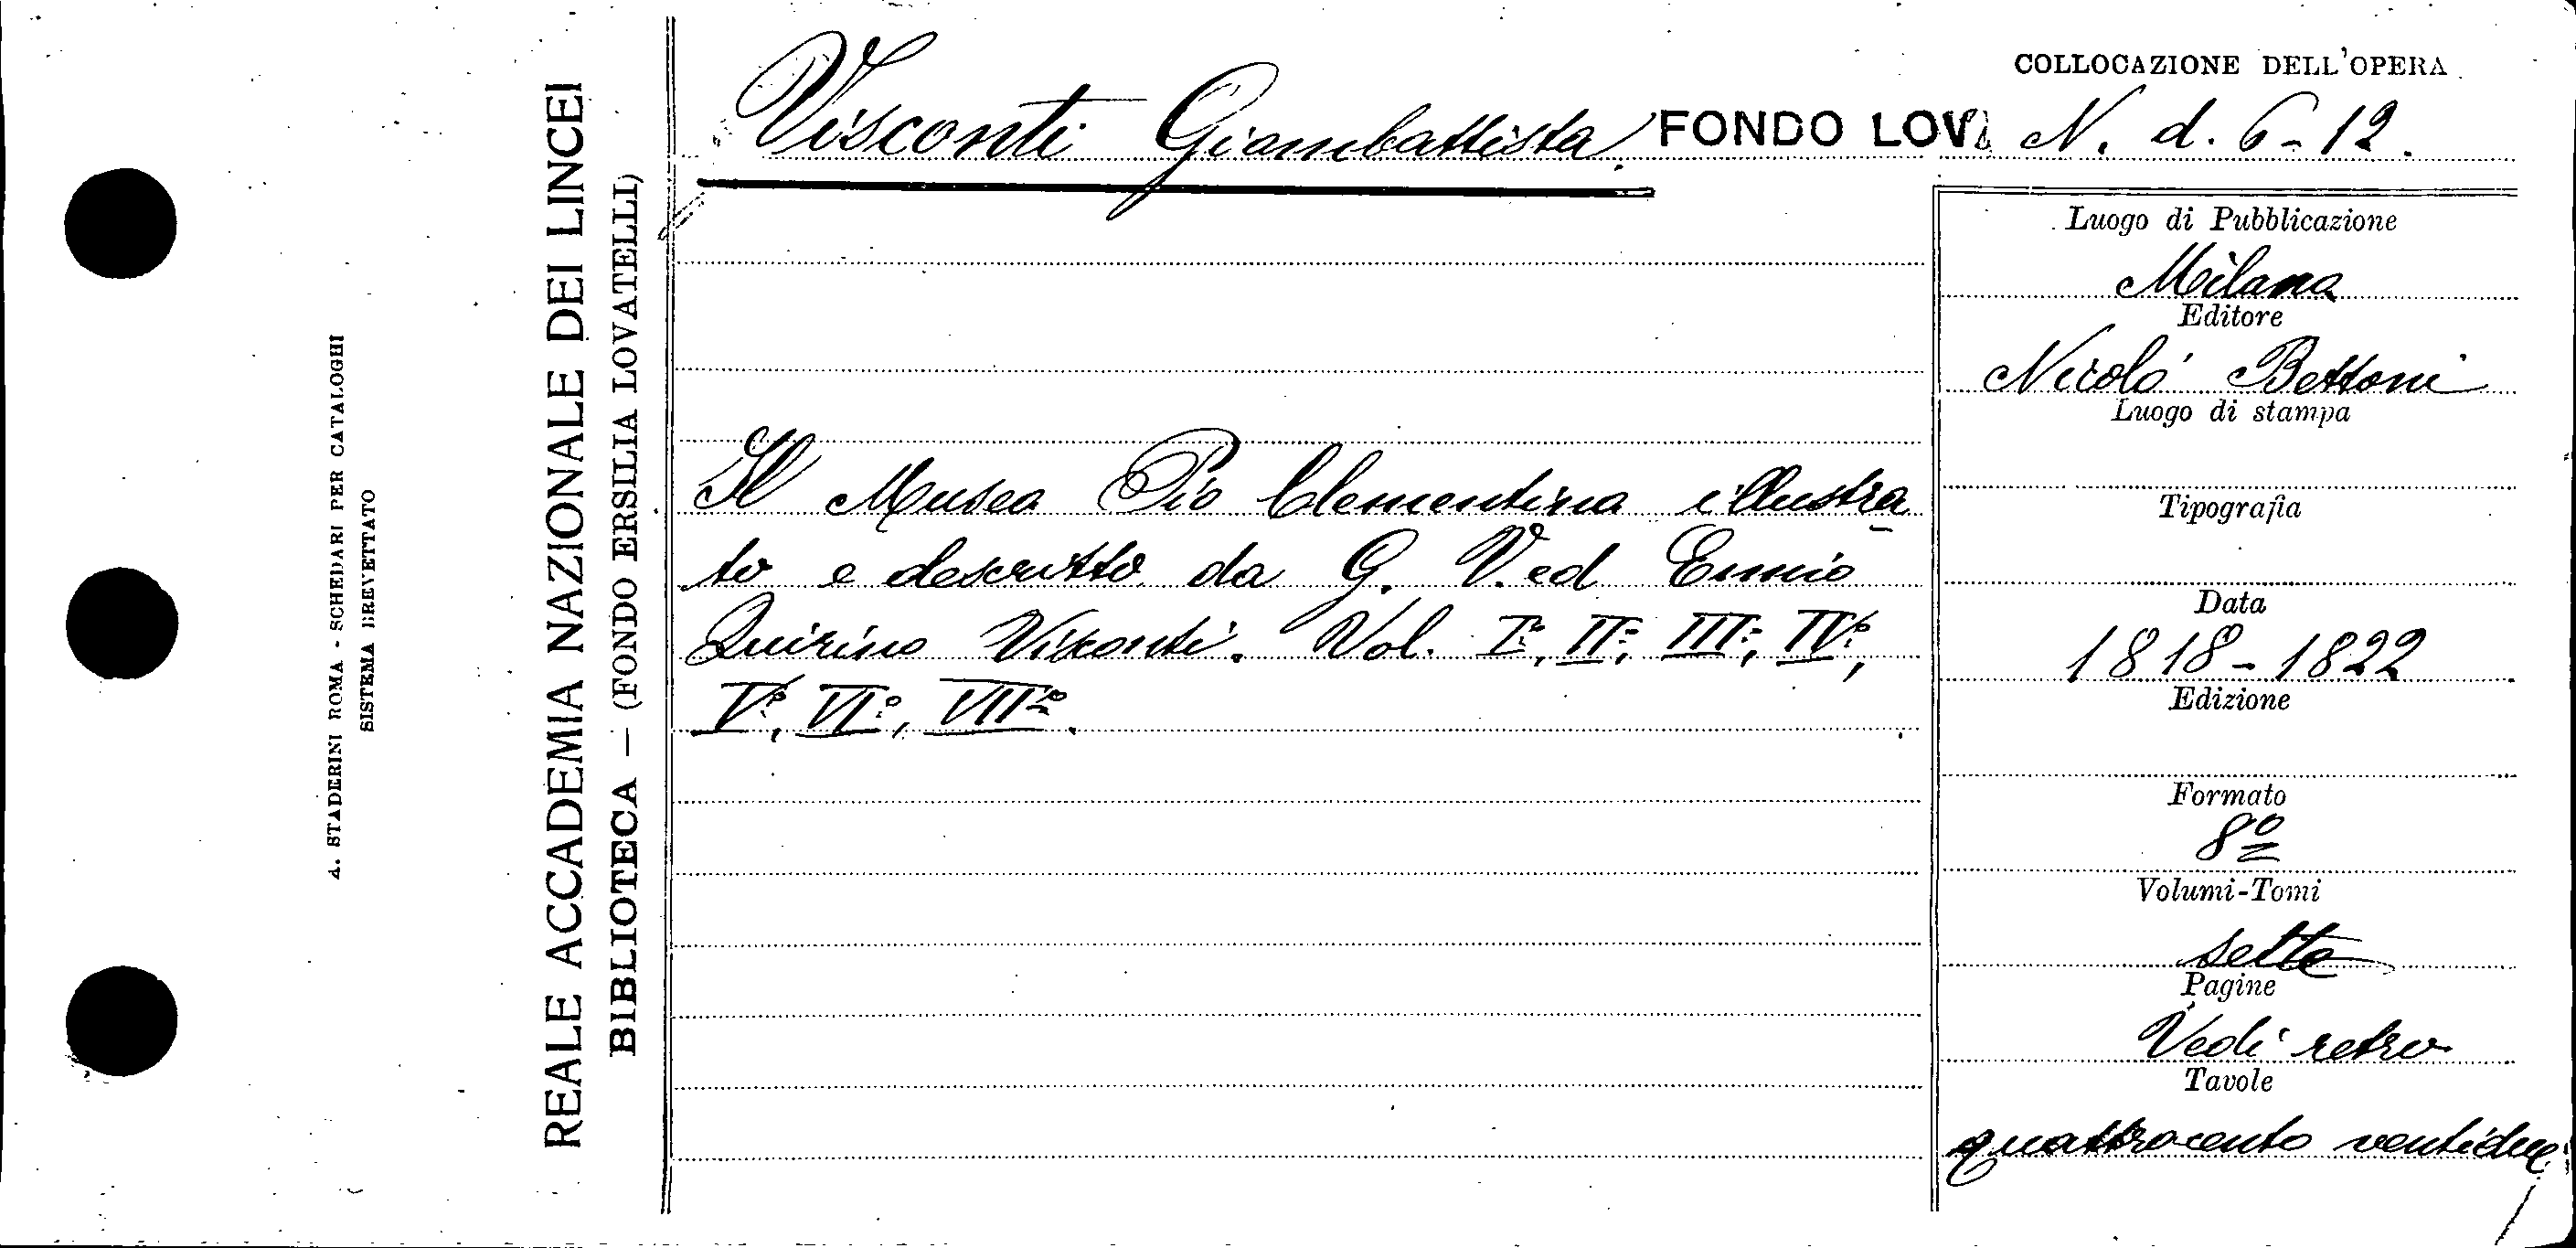 A. STADERINI ROMA - SCHEDARI PER CATALOGHI
SISTEMA BREVETTATO
REALE ACCADEMIA NAZIONALE DEI LINCEI
BIBLIOTECA — (FONDO ERSILIA LOVATELLI)
Visconti Giambattista FONDO LOV.
COLLOCAZIONE DELL'OPERA
N. d. 6-12.
Il Museo Pio Clementino illustra-
to e descritto da G. V. ed Ennio
Quirino Visconti. Vol. I°, II°, III°, IV°,
V°, VI°, VII°.
Luogo di Pubblicazione
Milano
Editore
Nicoló Bettoni
Luogo di stampa
Tipografia
Data
1818-1822
Edizione
Formato
8°
Volumi-Tomi
sette
Pagine
Vedi retro
Tavole
quattrocento ventidue